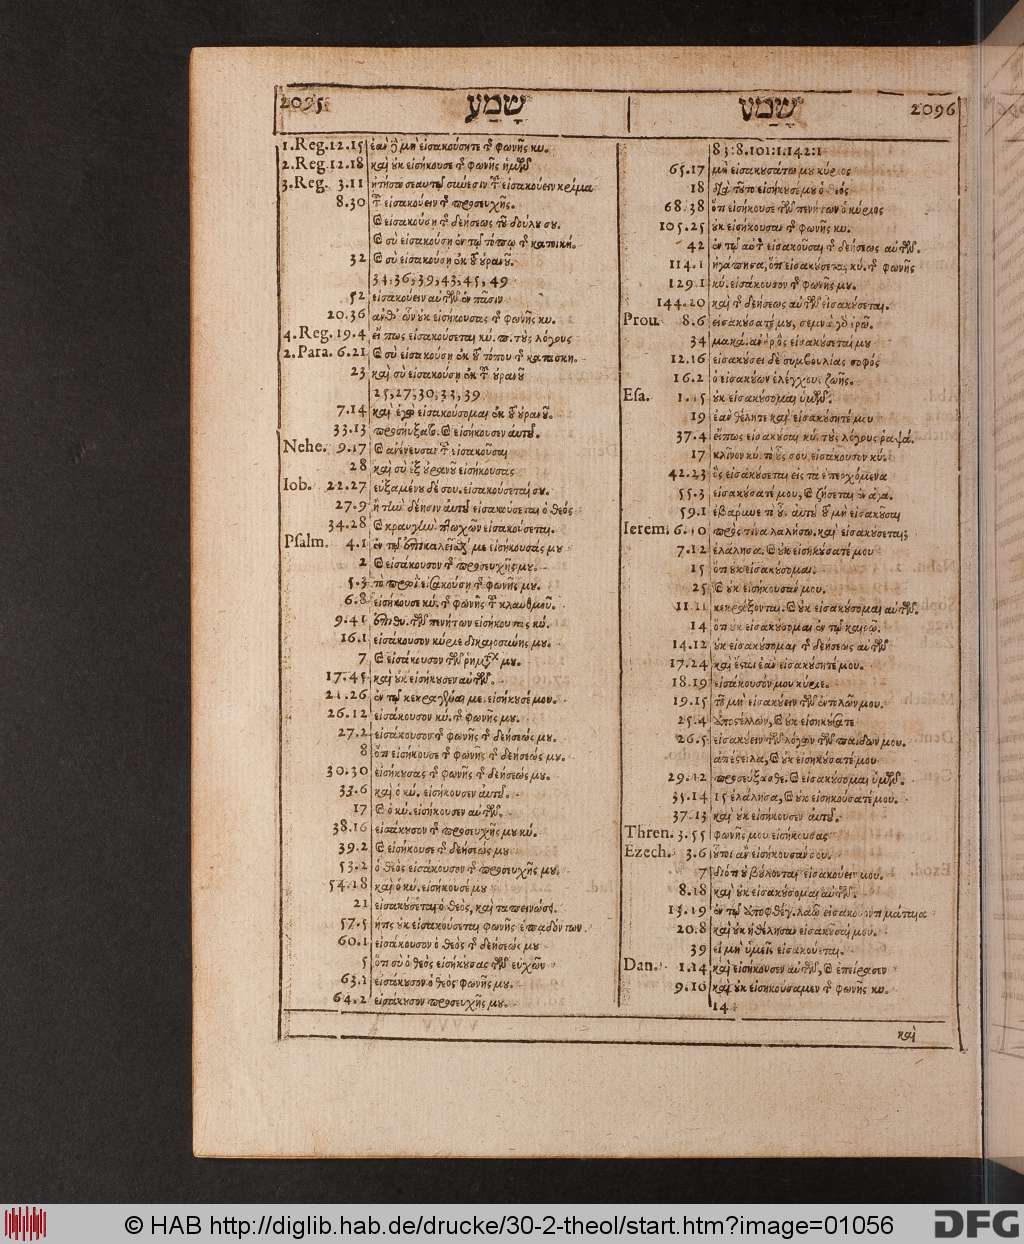 2095 שָׁמַע
1.Reg. 12.15 ἐὰν ὃ μὴ εἰσακούσητε τ φωνῆς κυ.
2.Reg. 12.18 καὶ ὐκ εἰσήκουσε τ φωνῆς ἡμῶν
3.Reg. 3.11 ᾐτήσω σεαυτῷ σύνεσιν τῦ εἰσακούειν κρίμα
8.30 τῦ εἰσακούειν τ προσευχῆς.
Ⓒ εἰσακούσῃ τ δεήσεως τῦ δούλυ συ.
Ⓒ σὺ εἰσακούσῃ ἐν τῷ τόπῳ τ κατοική.
32 Ⓒ σὺ εἰσακούσῃ ἐκ τῦ ὐρανῦ.
34,36,39,43,45,49
52 εἰσακούειν αὐτῶν ἐν πᾶσιν
20.36 ἀνθ' ὧν ὐκ εἰσήκουσας τ φωνῆς κυ.
4.Reg. 19.4 εἴ πως εἰσακούσεται κύ. π. τὺς λόγους
2.Para. 6.21 Ⓒ σὺ εἰσακούσῃ ἐκ τῦ τόπου τ κατασκη.
23 καὶ σὺ εἰσακούσῃ ἐκ τῦ ὐρανῦ
25,27,30,33,39
7.14 καὶ ἐγὼ εἰσακούσομαι ἐκ τῦ ὐρανῦ.
33.13 προσηύξατο. Ⓒ εἰσήκουσεν αὐτῦ.
Nehe. 9.17 Ⓒ ἀνένευσαν τῦ εἰσακοῦσαι
28 καὶ σὺ ἐξ ὐρανῦ εἰσήκουσας
Iob. 22.27 εὐξαμένυ δέ σου. εἰσακούσεταί συ.
27.9 ἢ τὴν δέησιν αὐτῦ εἰσακούσεται ὁ θεός
34.28 Ⓒ κραυγὴν πτωχῶν εἰσακούσεται.
Psalm. 4.1 ἐν τῷ ἐπικαλεῖσθαί με εἰσήκουσάς μυ
2 Ⓒ εἰσάκουσον τ προσευχῆς μυ.
5.3 τὸ πρωῒ εἰσακούσῃ τ φωνῆς μυ.
6.8 εἰσήκουσε κύ. τ φωνῆς τῦ κλαυθμοῦ.
9.41 ἐπιθυ. τῶν πενήτων εἰσήκουσας κύ.
16.1 εἰσάκουσον κύριε δικαιοσύνης μυ.
7 Ⓒ εἰσάκουσον τῶν ῥημάτ μυ.
17.45 καὶ ὐκ εἰσήκυσεν αὐτῶν.
21.26 ἐν τῷ κεκραγέναι με. εἰσήκυσέ μου.
26.12 εἰσάκουσον κύ. τ φωνῆς μυ.
27.2 εἰσάκουσον τ φωνῆς τ δεήσεώς μυ.
8 ὅτι εἰσήκουσε τ φωνῆς τ δεήσεώς μυ.
30.30 εἰσήκυσας τ φωνῆς τ δεήσεώς μυ.
33.6 καὶ ὁ κύ. εἰσήκουσεν αὐτῦ.
17 Ⓒ ὁ κύ. εἰσήκουσεν αὐτῶν.
38.16 εἰσάκυσον τ προσευχῆς μυ κύ.
39.2 Ⓒ εἰσήκουσε τ δεήσεώς μυ
53.2 ὁ θεὸς εἰσάκουσον τ προσευχῆς μυ.
54.18 καὶ ὁ κύ. εἰσήκουσέ μυ
21 εἰσακύσεται ὁ θεός, καὶ ταπεινώσ.
57.5 ἥτις ὐκ εἰσακούσεται φωνῆς ἐπαδόντων.
60.1 εἰσάκουσον ὁ θεὸς τ δεήσεώς μυ
5 ὅτι σὺ ὁ θεὸς εἰσήκυσας τῶν εὐχῶν
63.1 εἰσάκυσον ὁ θεὸς φωνῆς μυ.
64.2 εἰσάκυσον προσευχῆς μυ.
שָׁמַע 2096
83:8.101:1.142:1
65.17 μὴ εἰσακυσάτω μυ κύριος
18 διὰ τῦτο εἰσήκυσέ μυ ὁ θεός
68.38 ὅτι εἰσήκουσε τῶν πενήτων ὁ κύριος
105.25 ὐκ εἰσήκουσαν τ φωνῆς κυ.
42 ἐν τῷ αὐτ εἰσακοῦσαι τ δεήσεως αὐτῶν.
114.1 ἠγάπησα, ὅτι εἰσακύσεται κύ. τ φωνῆς
129.1 κύ. εἰσάκουσον τ φωνῆς μυ.
144.20 καὶ τ δεήσεως αὐτῶν εἰσακύσεται.
Prou. 8.6 εἰσακύσατέ μυ, σεμνὰ γὸ ἐρῶ.
34 μακά. ἀνὴρ ὃς εἰσακύσεται μυ
12.16 εἰσακύσει δὲ συμβουλίας σοφός
16.2 ὁ εἰσακύων ἐλέγχου. ζωῆς.
Esa. 1.15 ὐκ εἰσακύσομαι ὑμῶν.
19 ἐὰν θέλητε καὶ εἰσακύσητέ μυ
37.4 εἴπως εἰσακύσαι κύ. τὺς λόγους ῥαψά.
17 κλῖνον κύ. τὸ ὖς σου, εἰσάκουσον κύ.
42.23 ὃς εἰσακύσεται εἰς τὰ ἐπερχόμενα
55.3 εἰσακύσατέ μου, Ⓒ ζήσεται ἐν ἀγα.
59.1 ἐβάρυνε τὸ ὖ. αὐτῦ τῦ μὴ εἰσακῦσαι
Ierem. 6.10 πρὸς τίνα λαλήσω. καὶ εἰσακύσεται;
7.12 ἐλάλησα. Ⓒ ὐκ εἰσηκύσατέ μου
15 ὅτι ὐκ εἰσακύσομαι.
25 Ⓒ ὐκ εἰσήκουσάν μου.
11.11 κεκράξονται. Ⓒ ὐκ εἰσακύσομαι αὐτῶν.
14 ὅτι ὐκ εἰσακύσομαι ἐν τῷ καιρῷ.
14.12 ὐκ εἰσακύσομαι τ δεήσεως αὐτῶν
17.24 καὶ ἔσται ἐὰν εἰσακύσητέ μου.
18.19 εἰσάκουσόν μου κύριε.
19.15 τῦ μὴ εἰσακύειν τῶν ἐντολῶν μου.
25.4 ἀποστέλλων, Ⓒ ὐκ εἰσηκύσατε
26.5 εἰσακύειν τῶν λόγων τῶν παίδων μου.
ἀπέστειλα, Ⓒ ὐκ εἰσηκύσατέ μου
29.12 προσεύξασθε. Ⓒ εἰσακύσομαι ὑμῶν.
35.14 15 ἐλάλησα, Ⓒ ὐκ εἰσηκούσατέ μου.
37.13 καὶ ὐκ εἰσήκουσεν αὐτῦ.
Thren. 3.55 φωνῆς μου εἰσήκουσας
Ezech. 3.6 ὗτοι ἂν εἰσήκουσάν σου.
7 διότι ὐ βύλονται εἰσακούειν μου.
8.18 καὶ ὐκ εἰσακύσομαι αὐτῶν.
13.19 ἐν τῷ ἀποφθέγ. λαῷ εἰσακούοντι μάταια
20.8 καὶ ὐκ ἠθέλησαν εἰσακῦσαί μου.
39 εἰ μὴ ὑμεῖς εἰσακούεται.
Dan. 1.14 καὶ εἰσήκουσεν αὐτῶν, Ⓒ ἐπείρασεν
9.10 καὶ ὐκ εἰσηκούσαμεν τ φωνῆς κυ.
14
καὶ
© HAB http://diglib.hab.de/drucke/30-2-theol/start.htm?image=01056
DFG